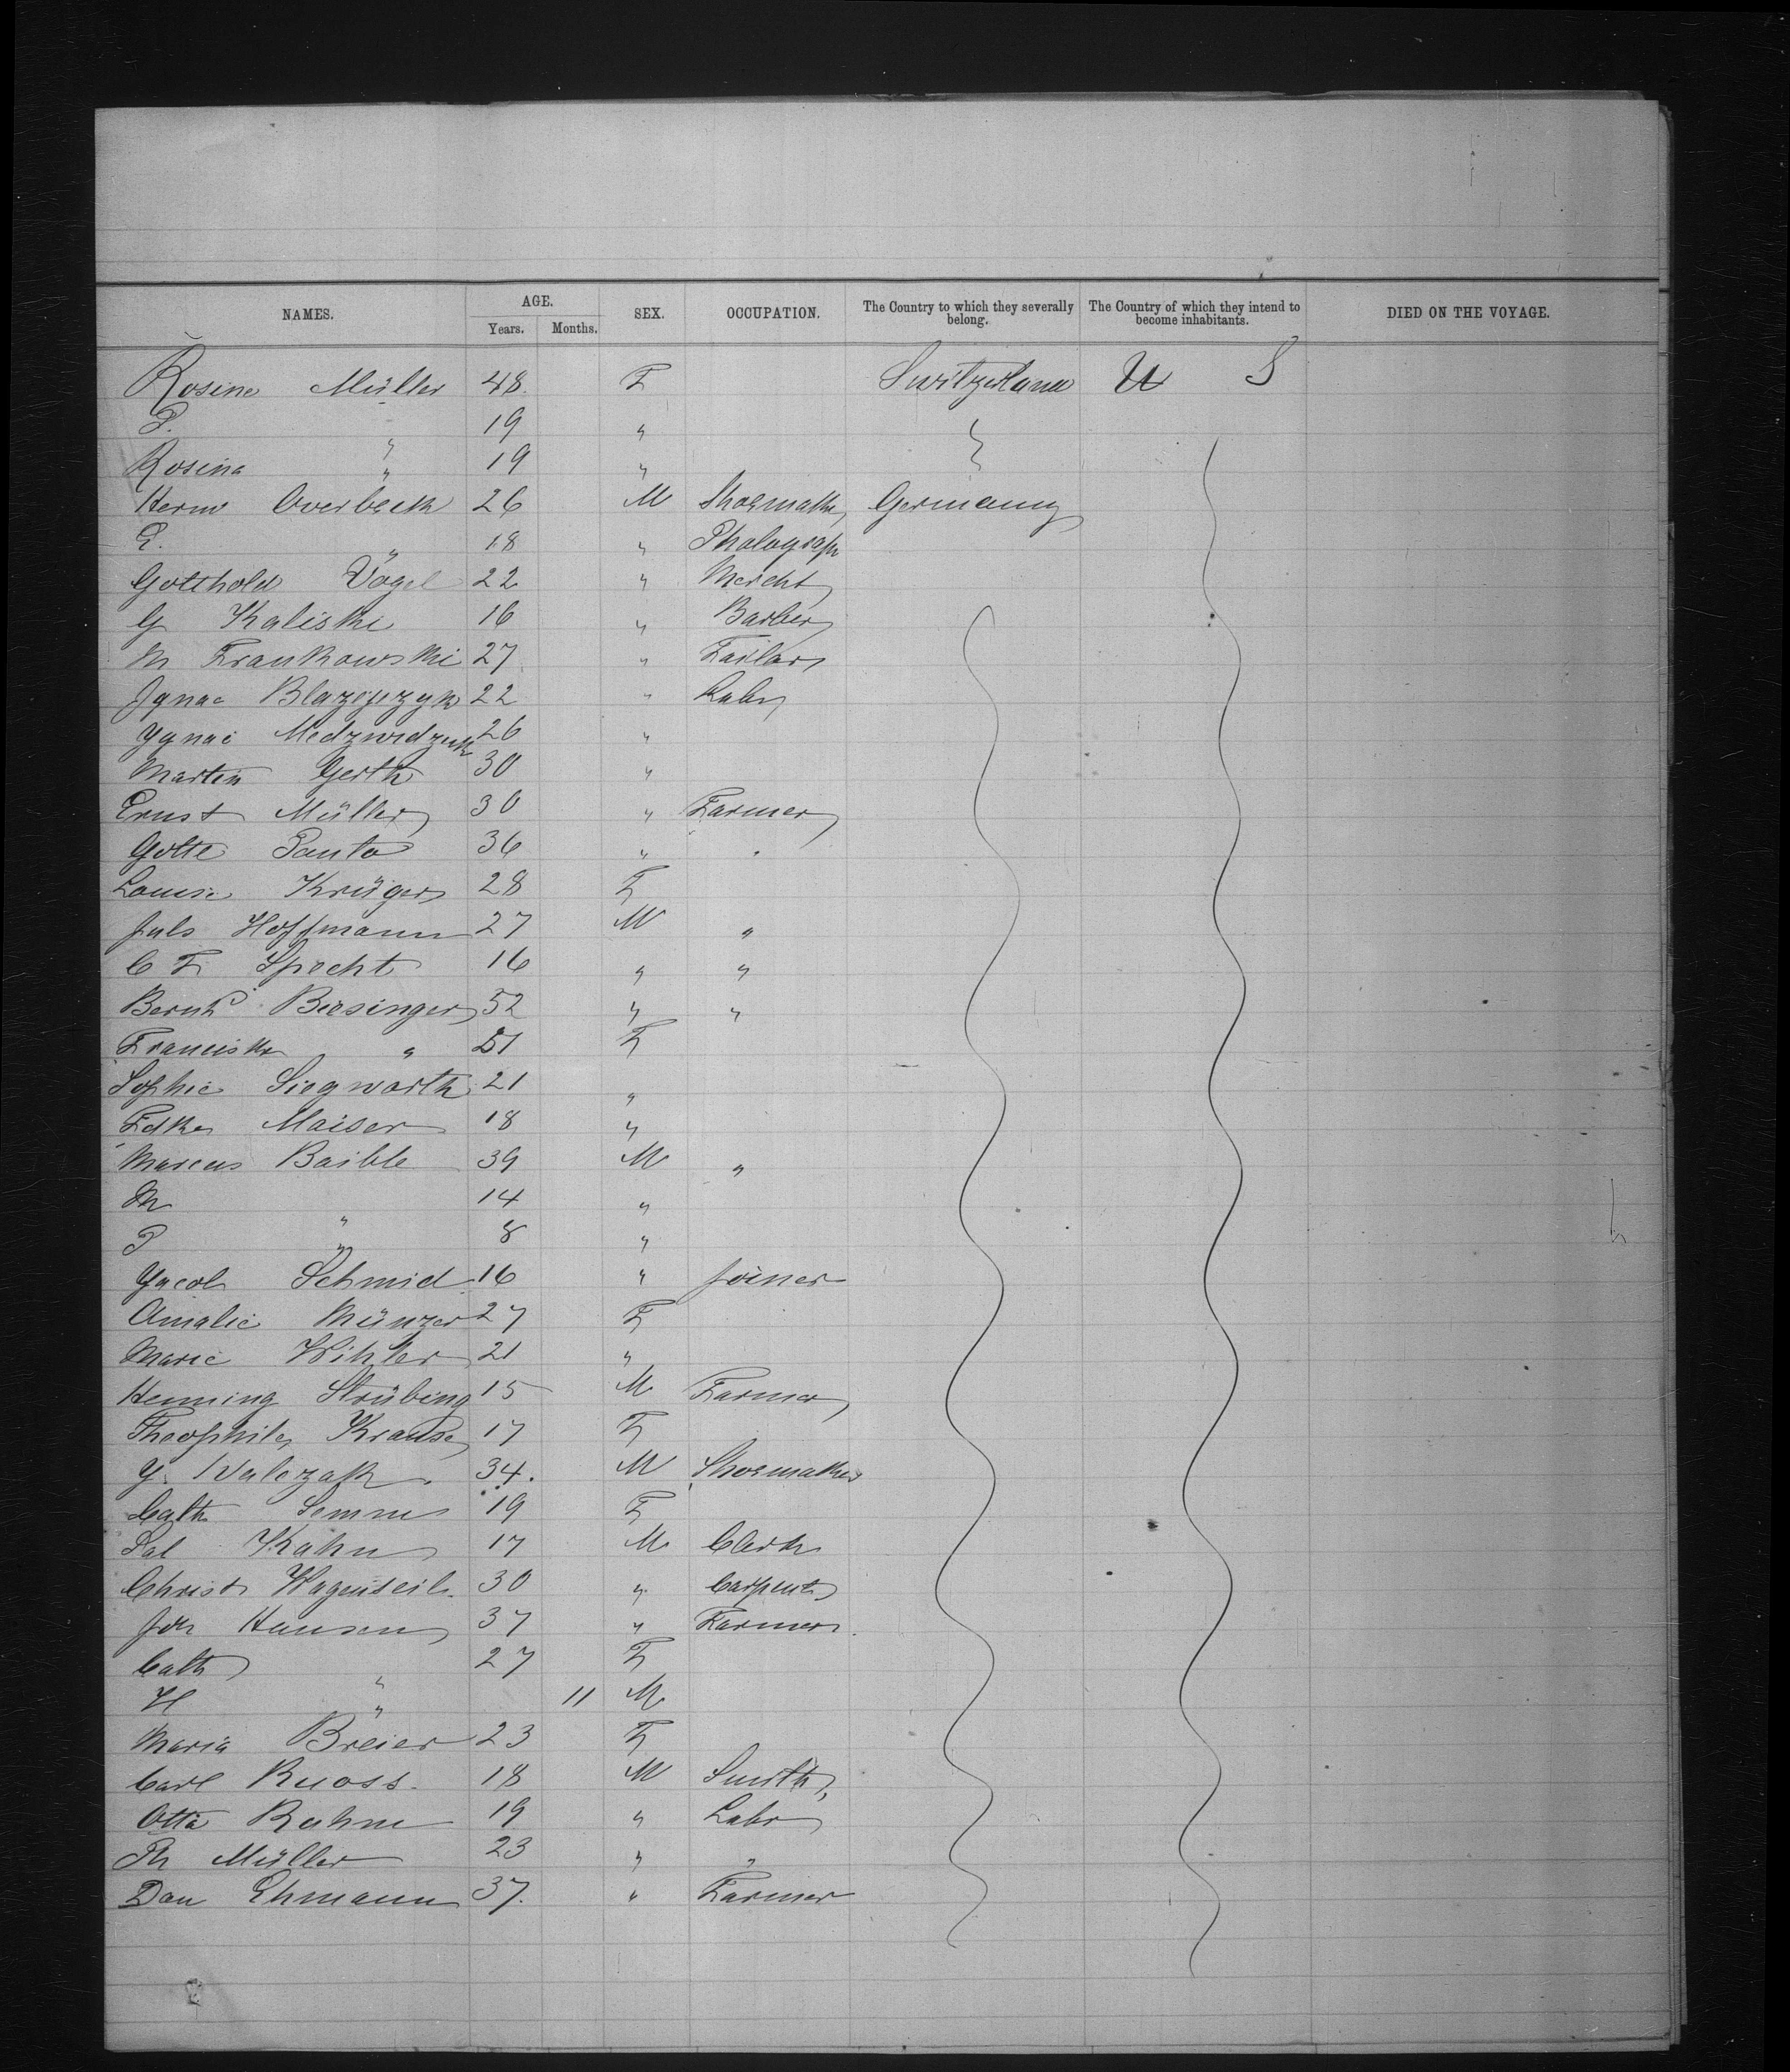 NAMES. AGE. Years. Months. SEX. OCCUPATION. The Country to which they severally belong. The Country of which they intend to become inhabitants. DIED ON THE VOYAGE.
Rosine Müller 48 F Switzerland U S
P. " 19 "
Rosina " 19 "
Herm Overbeck 26 M Shoemaker Germany
E. " 18 " Photograph
Gotthold Vogel 22 " Mercht
G Kaliski 16 " Barber
M Frankowski 27 " Tailor
Ignac Blazejezyk 22 " Labr
Ygnac 26 "
Martin Gerth 30 "
Ernst Müller 30 " Farmer
Golte Panta 36 " "
Louise Krüger 28 F
Juls Hoffmann 27 M "
C F Specht 16 " "
Bernhd Biesinger 52 " "
Franciska " 51 F
Sophie Siegwarth 21 "
Maiser 18 "
Marcus Baible 39 M "
M " 14 "
P " 8 "
Yacob Schmid 16 " Joiner
Amalie Münzer 27 F
Marie Wihler 21 "
Henning Strübing 15 M Farmer
Theophile Krause 17 F
Y. Walczak 34. M Shoemaker
Cath Semm 19 F
Sal Kahn 17 M Clerk
Christ Wagenseil 30 " Carpent
Joh Hansen 37 " Farmer
Cath " 27 F
H " 11 M
Maria Breier 23 F
Carl Ruoss 18 M Smith
Otto Rahm 19 " Labr
Th Müller 23 " "
Dan Ehmann 37. " Farmer